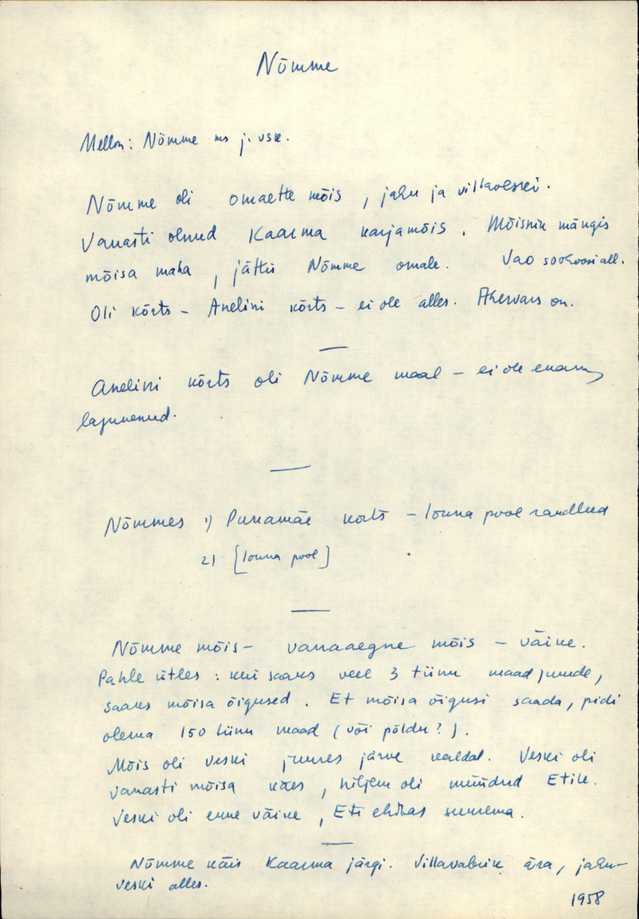 Nõmme
Mellon: Nõmme ms j. vsk.
Nõmme oli omaette mõis, jahu ja villaveski.
Vanasti olnud Kaarma karjamõis. Mõisnik mängis
mõisa maha, jättis Nõmme omale. Vao sookoosi all.
Oli kõrts – Anelini kõrts – ei ole alles. Ahervars on.
—
Anelini kõrts oli Nõmme maal – ei ole enam,
lagunenud.
—
Nõmmes 1) Punamäe korts – lõuna pool
2) [lõuna pool]
—
Nõmme mõis – vanaaegne mõis – väike.
Pahle ütles: kui saaks veel 3 tiinu maad juurde,
saaks mõisa õigused. Et mõisa õigusi saada, pidi
olema 150 tiinu maad (või põldu?).
Mõis oli veski juures järve kaldal. Veski oli
vanasti mõisa käes, hiljem oli müüdud Etile.
Veski oli enne väike, Eti ehitas suurema.
—
Nõmme käis Kaarma järgi. Villavabrik ära, jahu-
veski alles.
1958